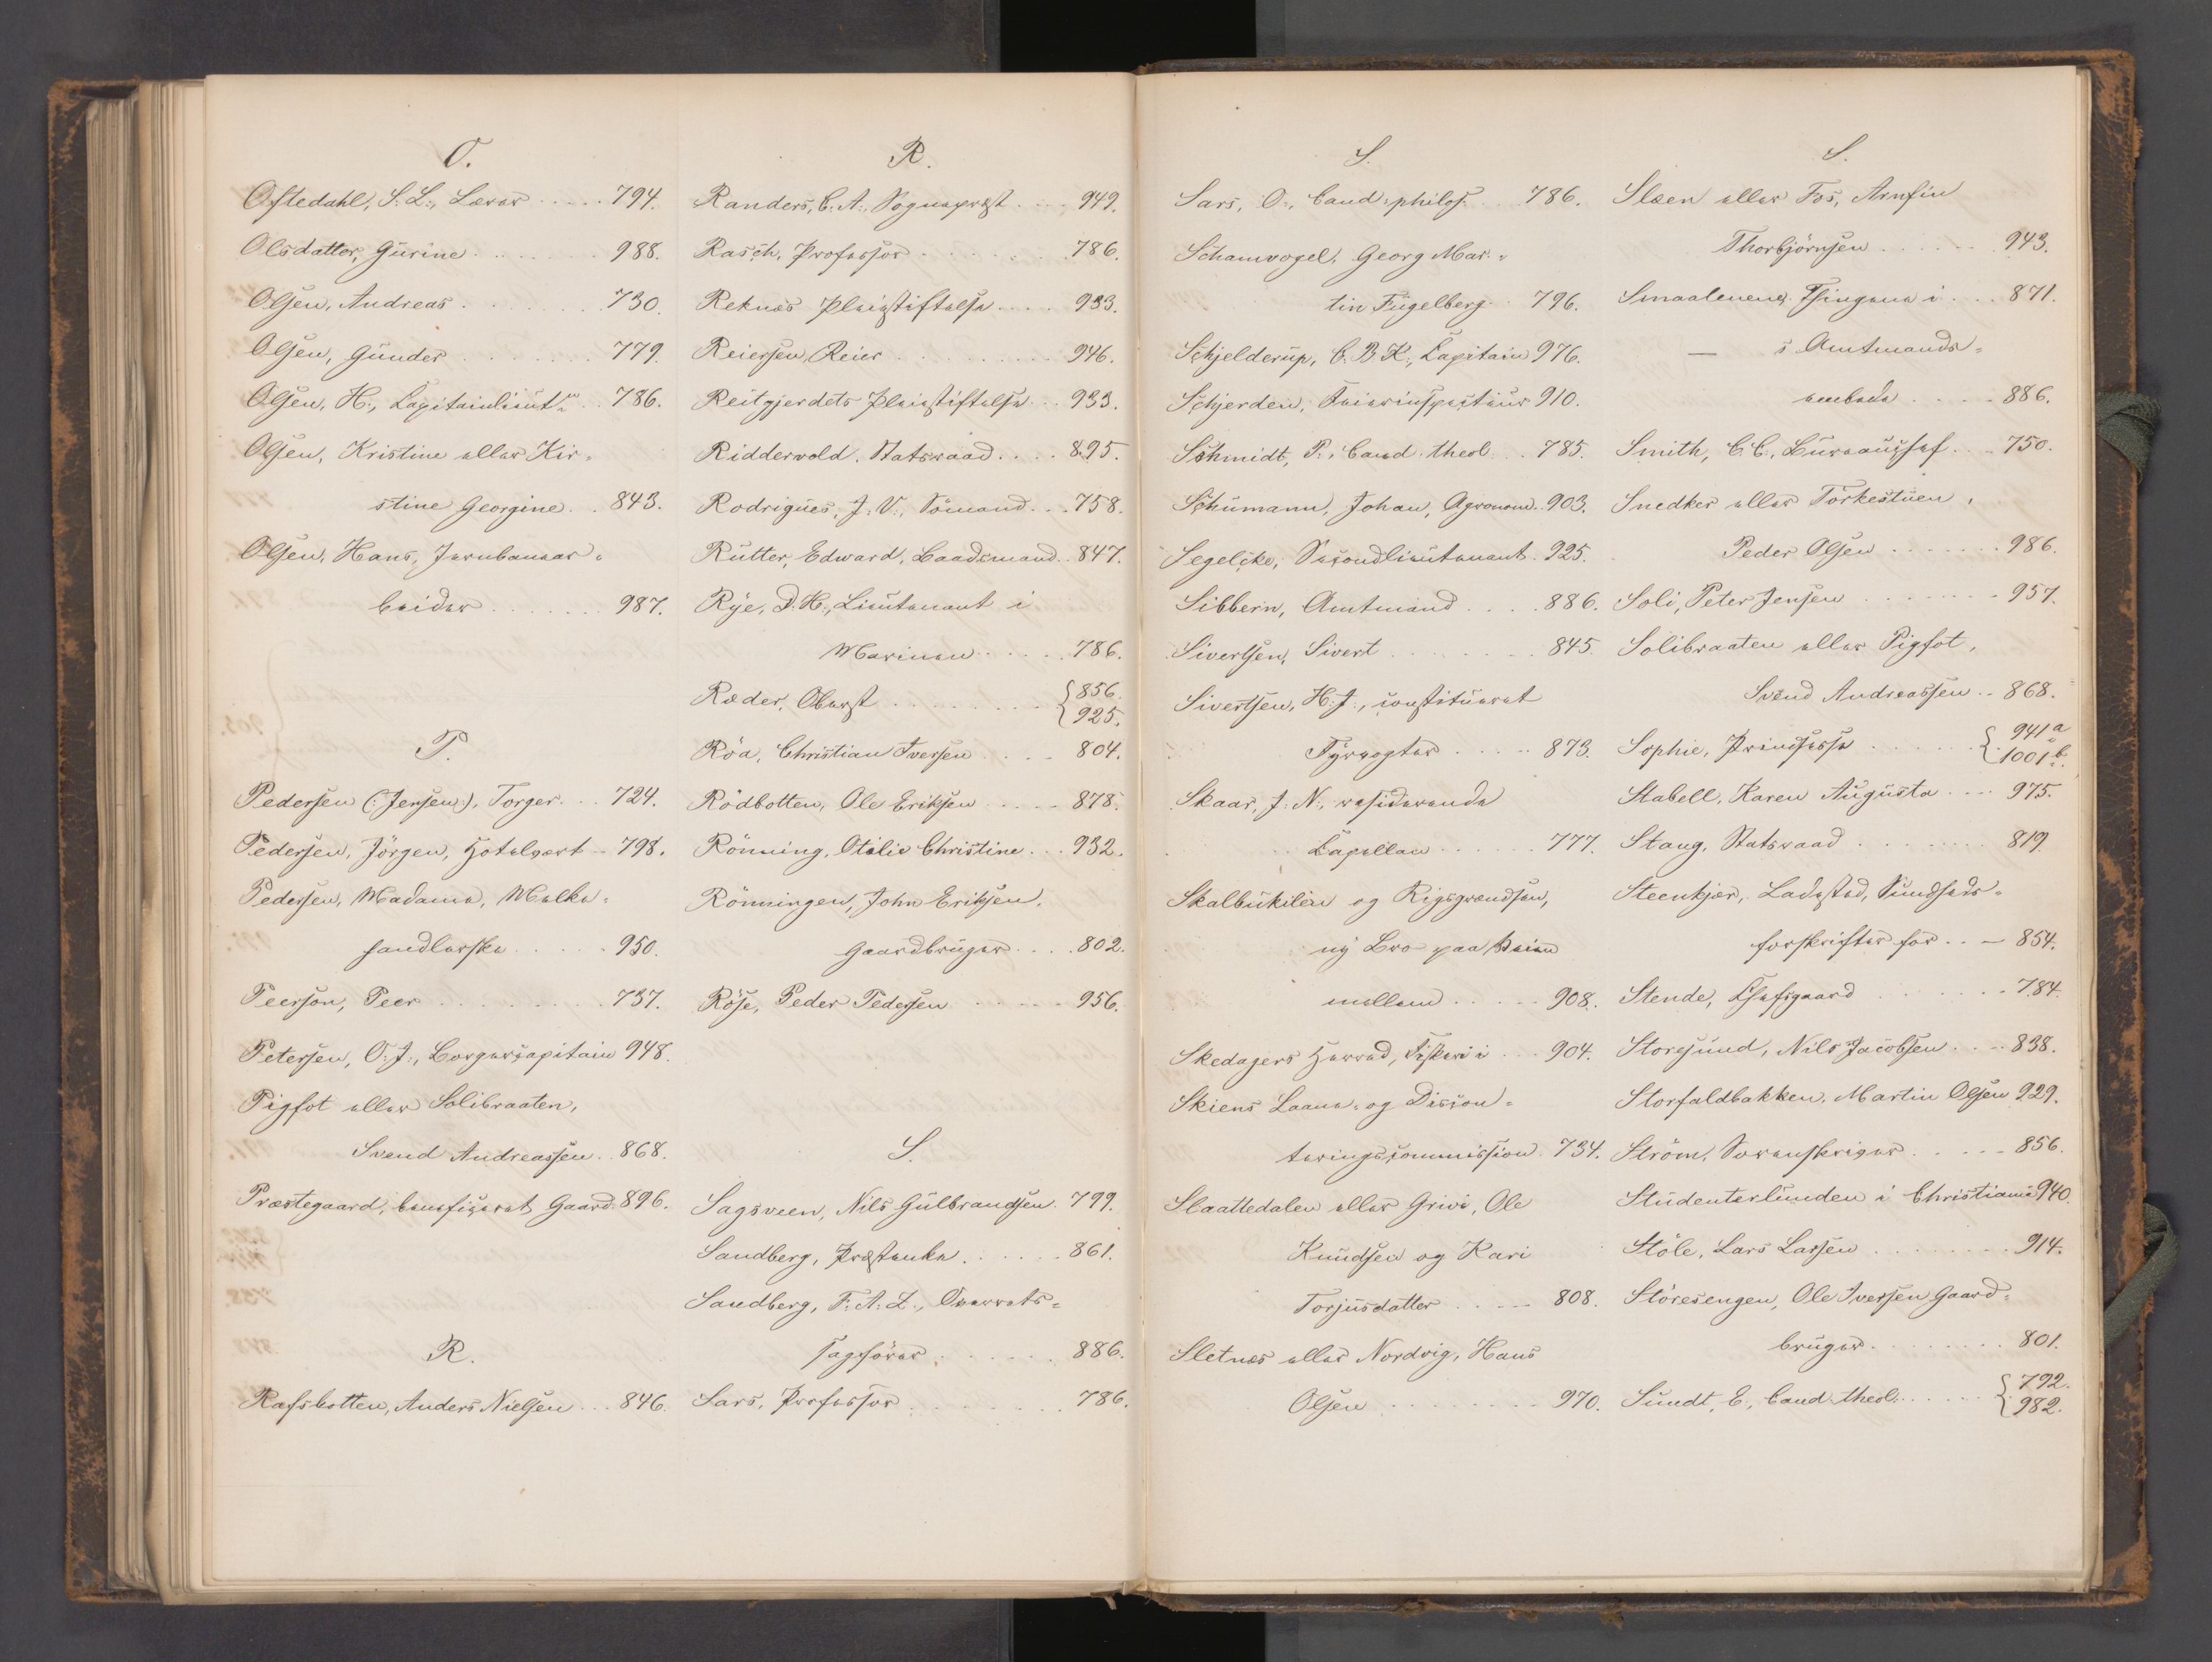 O.
Oftedahl, S. L., Lærer ..... 794.
Olsdatter, Gurine ....... 988.
Olsen, Andreas ........ 730.
Olsen, Gunder ........ 779.
Olsen, H., Capitainlieutn .. 786.
Olsen, Kristine eller Kir-
stine Georgine .. 843.
Olsen, Hans, Jernbanear-
beider ....... 987.
P.
Pedersen (: Jensen :), Torger ... 724.
Pedersen, Jörgen, Hotelvært - 798.
Pedersen, Madame, Melke-
handlerske ..... 950.
Peerson, Peer ........ 737.
Petersen, O. J., Borgercapitain 948.
Pigfot eller Solibraaten,
Svend Andreassen .. 868.
Præstegaard, beneficeret Gaard 896.
R.
Rafsbotten, Anders Nielsen ... 846.
R.
Randers, C. A., Sognepræst .... 949.
Rasch, Professor ....... 786.
Reknæs Pleiestiftelse .... 933.
Reiersen, Reier ......... 946.
Reitgjerdets Pleiestiftelse ... 933.
Riddervold, Statsraad .... 895.
Rodrigues, J. V., Sömand ... 758.
Rutter, Edward, Baadsmand .. 847.
Rye, D. H., Lieutenant i
Marinen ..... 786.
Ræder, Oberst ......... { 856.
925.
Röa, Christian Iversen .... 804.
Rödbotten, Ole Eriksen ..... 878.
Rönning, Otilie Christine ... 932.
Rönningen, John Eriksen,
Gaardbruger .... 802.
Röse, Peder Pedersen ..... 956.
S.
Sagsveen, Nils Gulbrandsen . 799.
Sandberg, Præsteenke ...... 861.
Sandberg, F. A. Z., Overrets-
sagförer ....... 886.
Sars, Professor ......... 786.
S.
Sars, O., Cand. philos. ... 786.
Schamvogel, Georg Mar-
tin Fugelberg .. 796.
Schjelderup, C. B. K., Capitain 976.
Schjerden, Veiinspecteur 910.
Schmidt, P., Cand. theol. ... 785.
Schumann, Johan, Agronom .. 903.
Segelcke, Secondlieutenant . 925.
Sibbern, Amtmand .... 886.
Sivertsen, Sivert ........ 845.
Sivertsen, H. J., constitueret
Fyrvogter ..... 873.
Skaar, J. N., residerende
Capellan ...... 777.
Skalbukilen og Rigsgrændsen,
ny Bro paa Veien
mellem ..... 908.
Skedagers Herred, Fiskeri i ... 904.
Skiens Laane- og Discon-
teringscommission . 734.
Slaattedalen eller Grivi, Ole
Knudsen og Kari
Torjusdatter .... 808.
Sletnæs eller Nordvig, Hans
Olsen ......... 970.
S.
Slæen eller Fos, Arnfin
Thorbjörnsen ...... 943.
Smaalenene, Thingene i ... 871.
— s Amtmands-
embede ..... 886.
Smith, C. C., Bureauchef ... 750.
Snedker eller Törkestuen,
Peder Olsen ....... 986.
Soli, Peter Jensen ........ 957.
Solibraaten eller Pigfot,
Svend Andreassen .. 868.
Sophie, Prindsesse ...... { 941 a
1001 b.
Stabell, Karen Augusta .... 975.
Stang, Statsraad ........ 819.
Steenkjær, Ladested, Sundheds-
forskrifter for ... 854.
Stende, Chefsgaard ....... 784.
Storesund, Nils Jacobsen .... 838.
Storfaldbakken, Martin Olsen 929.
Ström, Sorenskriver ..... 856.
Studenterlunden i Christiania 940.
Stöle, Lars Larsen ........ 914.
Störesengen, Ole Iversen, Gaard-
bruger ........ 801.
Sundt, E., Cand. theol. ...... { 792.
982.